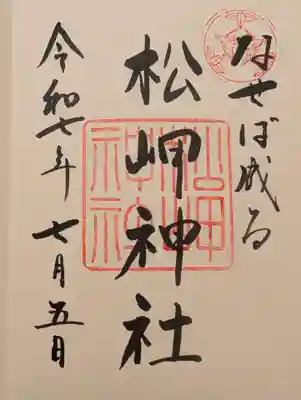 なせば成る
松岬神社
令和七年 七月五日